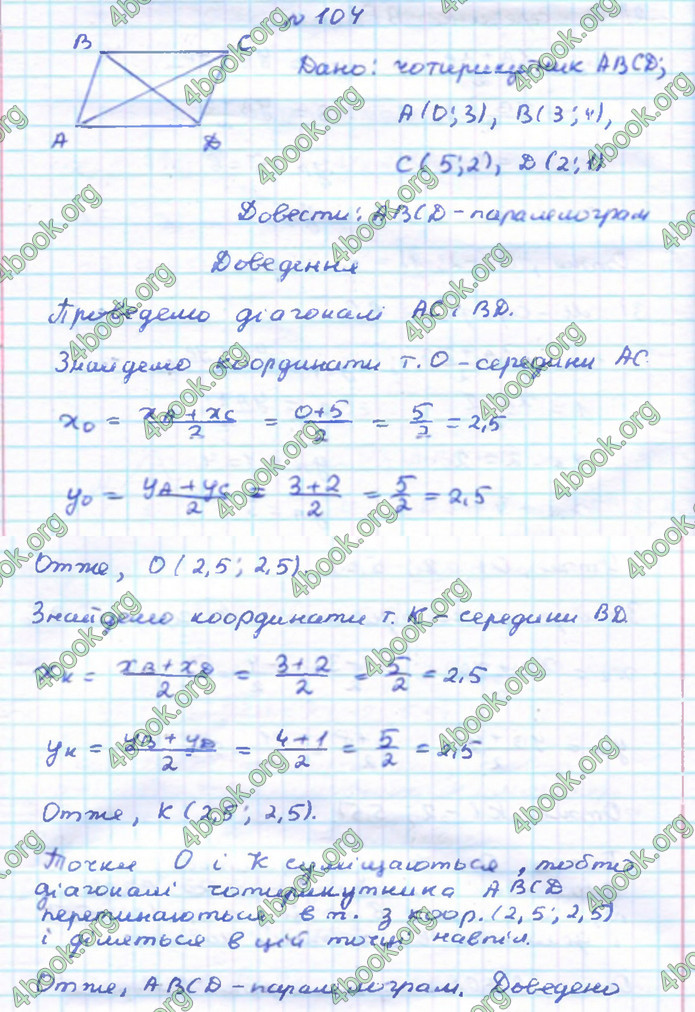 № 104
B C
A D
Дано: чотирикутник ABCD;
A(0;3), B(3;4),
C(5;2), D(2;1)
Довести: ABCD - паралелограм
Доведення
Проведемо діагоналі AC і BD.
Знайдемо координати т. O - середини AC.
x₀ = (x_A + x_C)/2 = (0+5)/2 = 5/2 = 2,5
y₀ = (y_A + y_C)/2 = (3+2)/2 = 5/2 = 2,5
Отже, O(2,5; 2,5).
Знайдемо координати т. K - середини BD.
x_K = (x_B + x_D)/2 = (3+2)/2 = 5/2 = 2,5
y_K = (y_B + y_D)/2 = (4+1)/2 = 5/2 = 2,5
Отже, K(2,5; 2,5).
Точки O і K суміщаються, тобто
діагоналі чотирикутника ABCD
перетинаються в т. з коор. (2,5; 2,5)
і діляться в цій точці навпіл.
Отже, ABCD - паралелограм. Доведено
4book.org